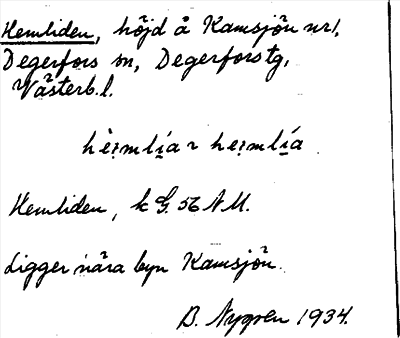 Hemliden, höjd å Kamsjön nr 1,
Degerfors sn, Degerfors tg,
Västerb. l.
hèımlı̱́a ~ heımlı̱́a
Hemliden, k G. 56 N M.
Ligger nära byn Kamsjön.
B. Nygren 1934.